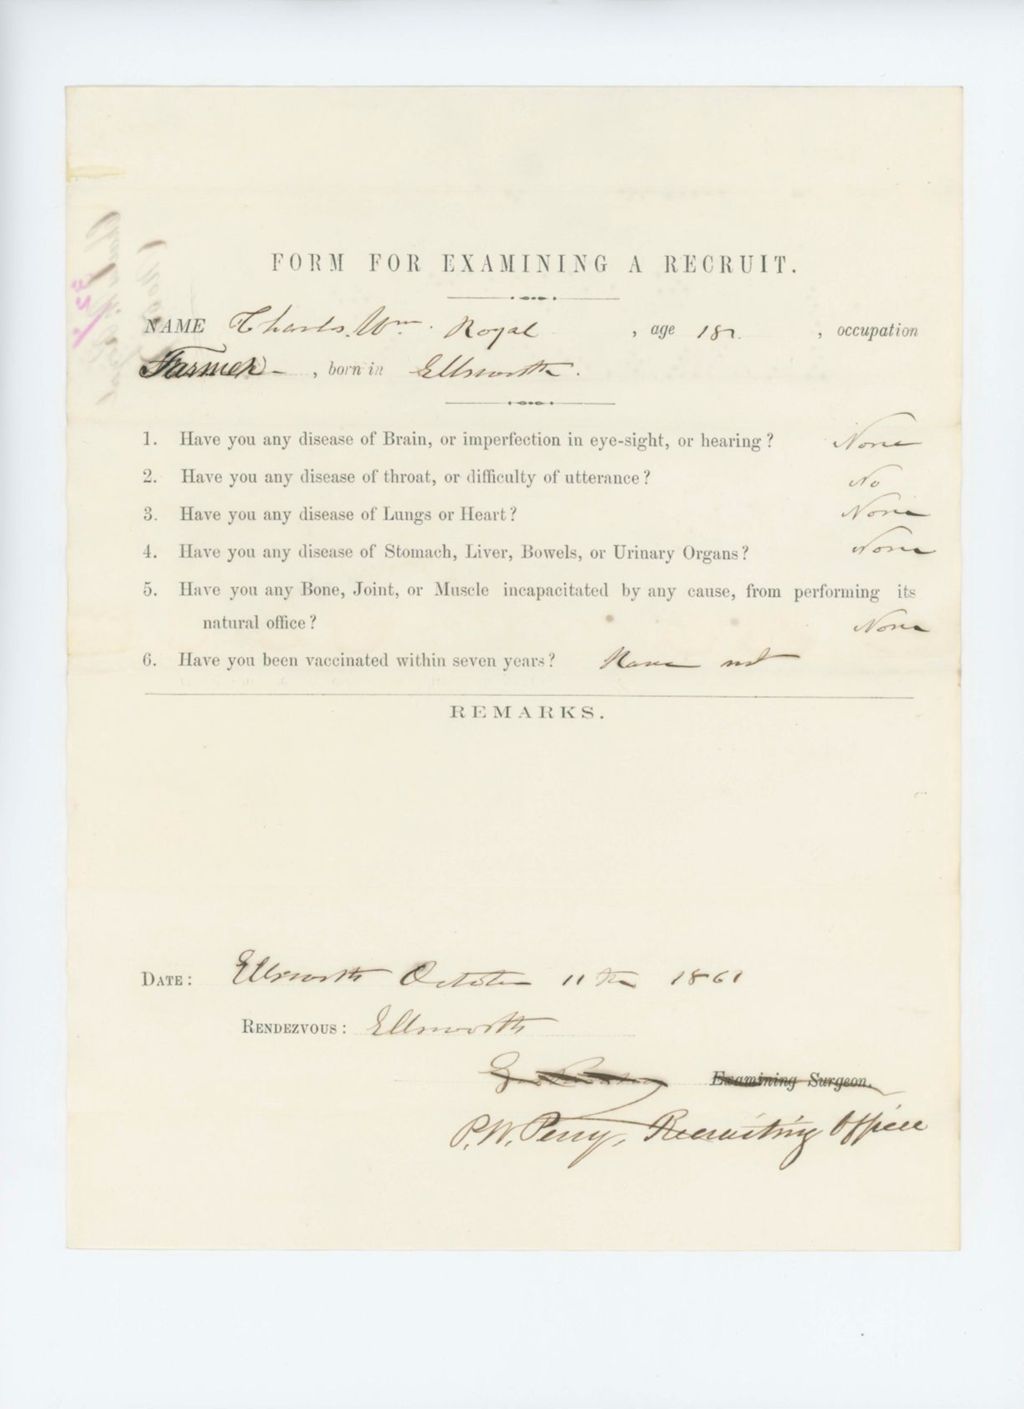 FORM FOR EXAMINING A RECRUIT.
NAME Charles Wm. Royal , age 18 , occupation
Farmer , born in Ellsworth.
1. Have you any disease of Brain, or imperfection in eye-sight, or hearing? None
2. Have you any disease of throat, or difficulty of utterance? No
3. Have you any disease of Lungs or Heart? None
4. Have you any disease of Stomach, Liver, Bowels, or Urinary Organs? None
5. Have you any Bone, Joint, or Muscle incapacitated by any cause, from performing its
natural office? None
6. Have you been vaccinated within seven years? Have not
REMARKS.
DATE: Ellsworth October 11th 1861
RENDEZVOUS: Ellsworth
Examining Surgeon.
P.W. Perry, Recruiting Officer